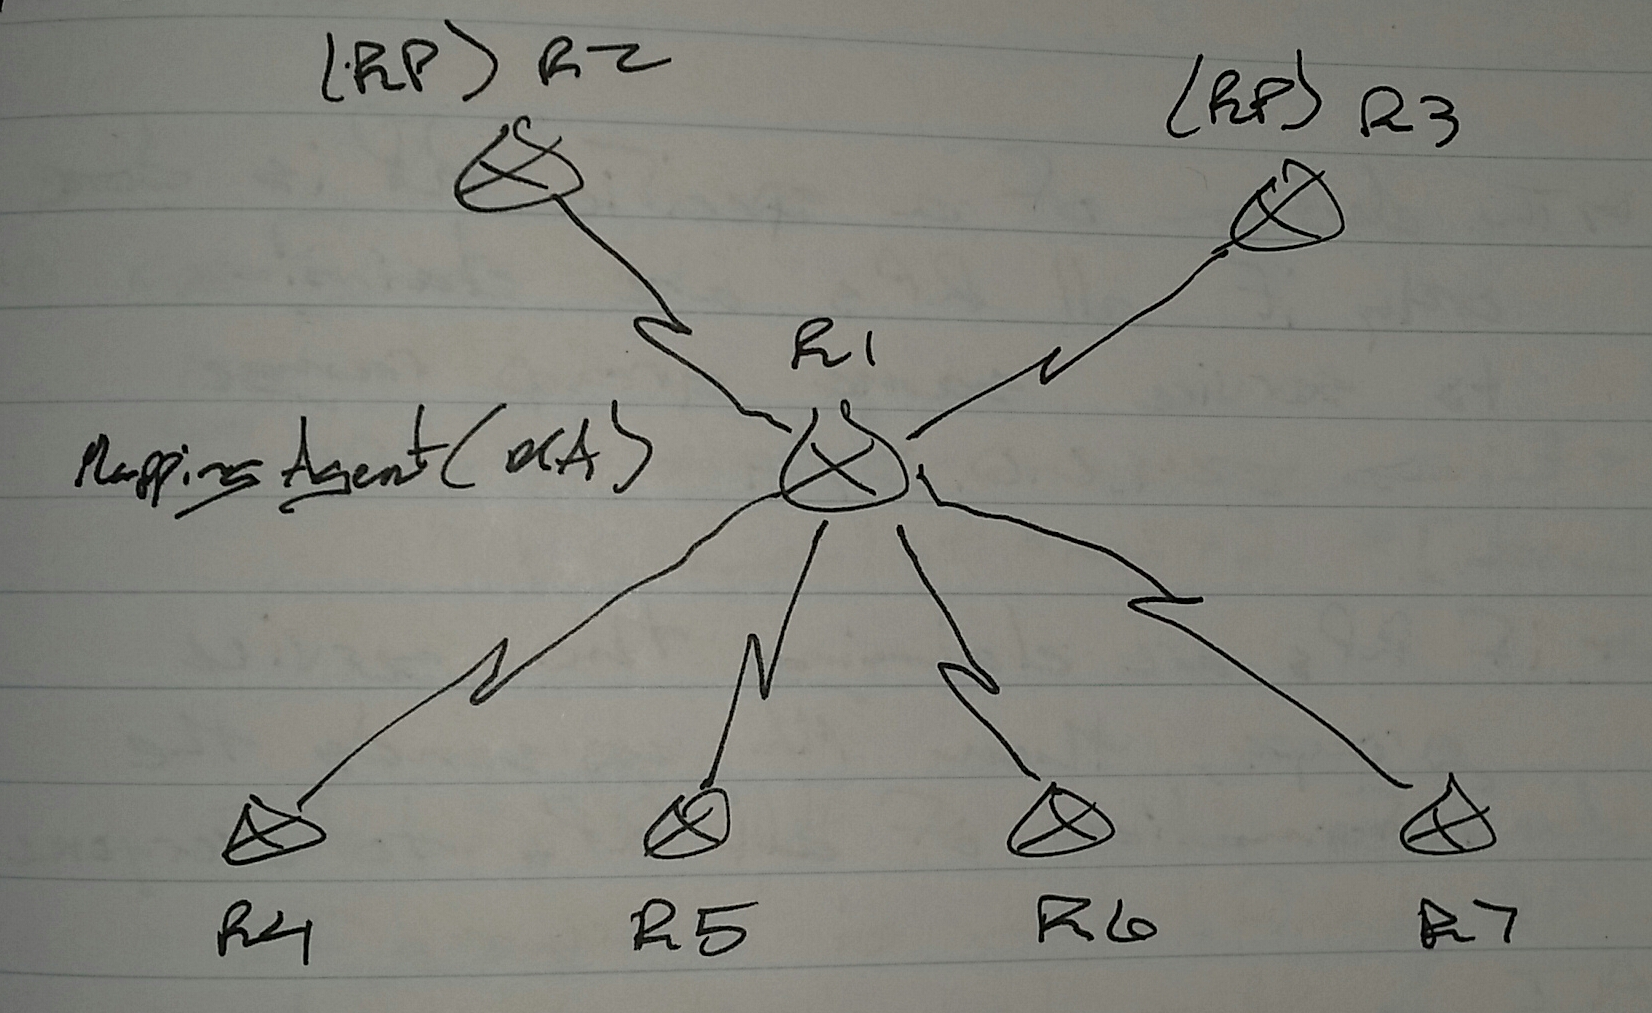 (RP) R2
(RP) R3
R1
Mapping Agent (MA)
R4
R5
R6
R7